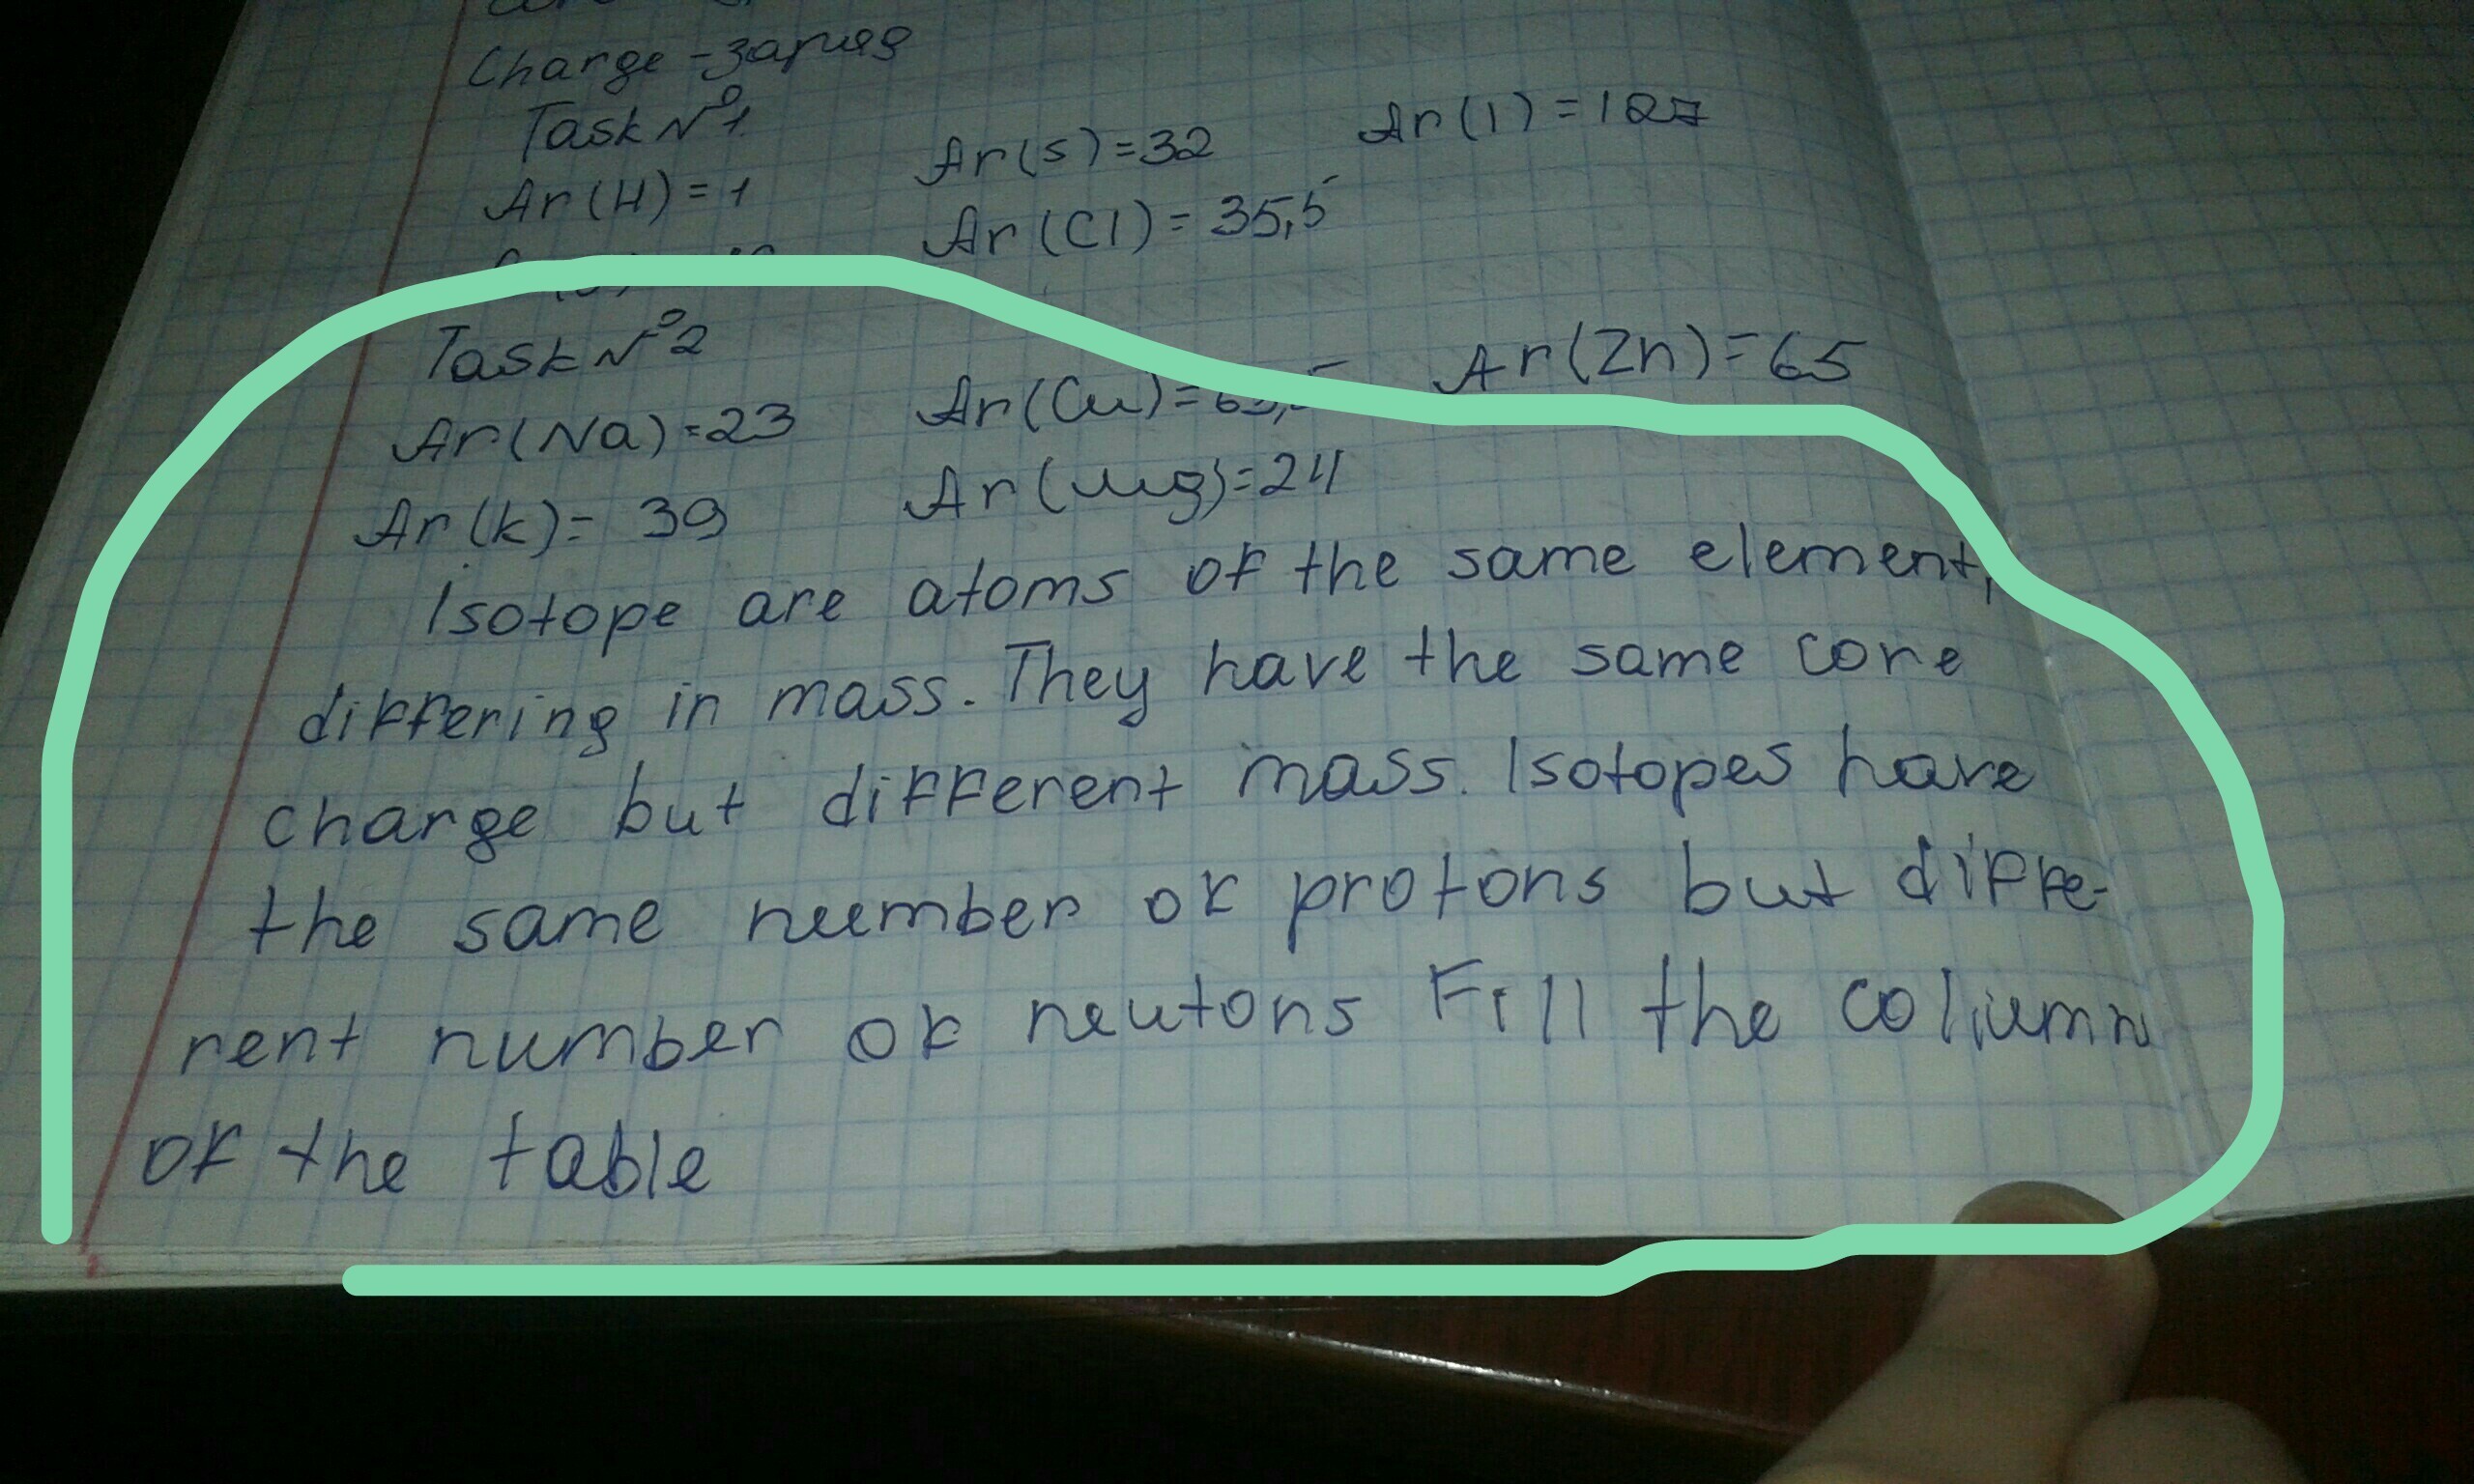 Charge - заряд
Task №1
Ar(H) = 1 Ar(S) = 32 Ar(I) = 127
Ar(Cl) = 35,5
Task №2
Ar(Na) = 23 Ar(Cu) = 63,5 Ar(Zn) = 65
Ar(k) = 39 Ar(Mg) = 24
Isotope are atoms of the same element,
differing in mass. They have the same core
charge but different mass. Isotopes have
the same number of protons but diffe-
rent number of neutons Fill the column
of the table